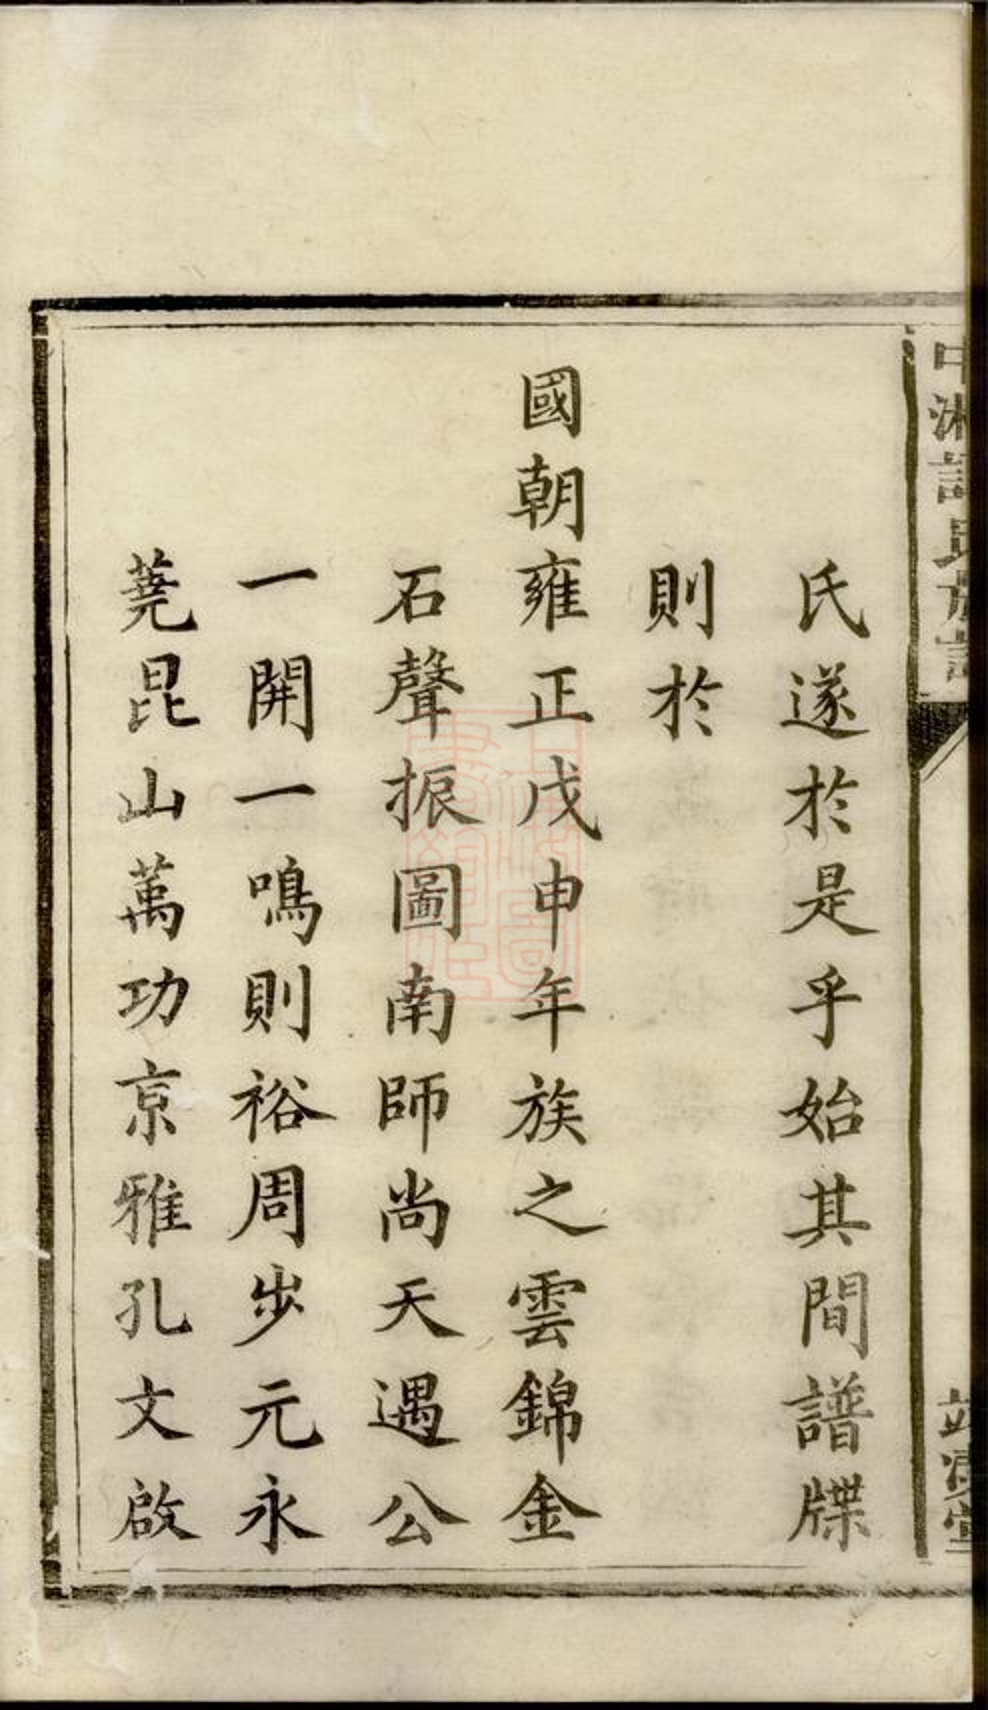 氏遂於是乎始其間譜牒
則於
國朝雍正戊申年族之雲錦金
石聲振圖南師尚天遇公
一開一鳴則裕周步元永
蕘昆山萬功京雅孔文啟